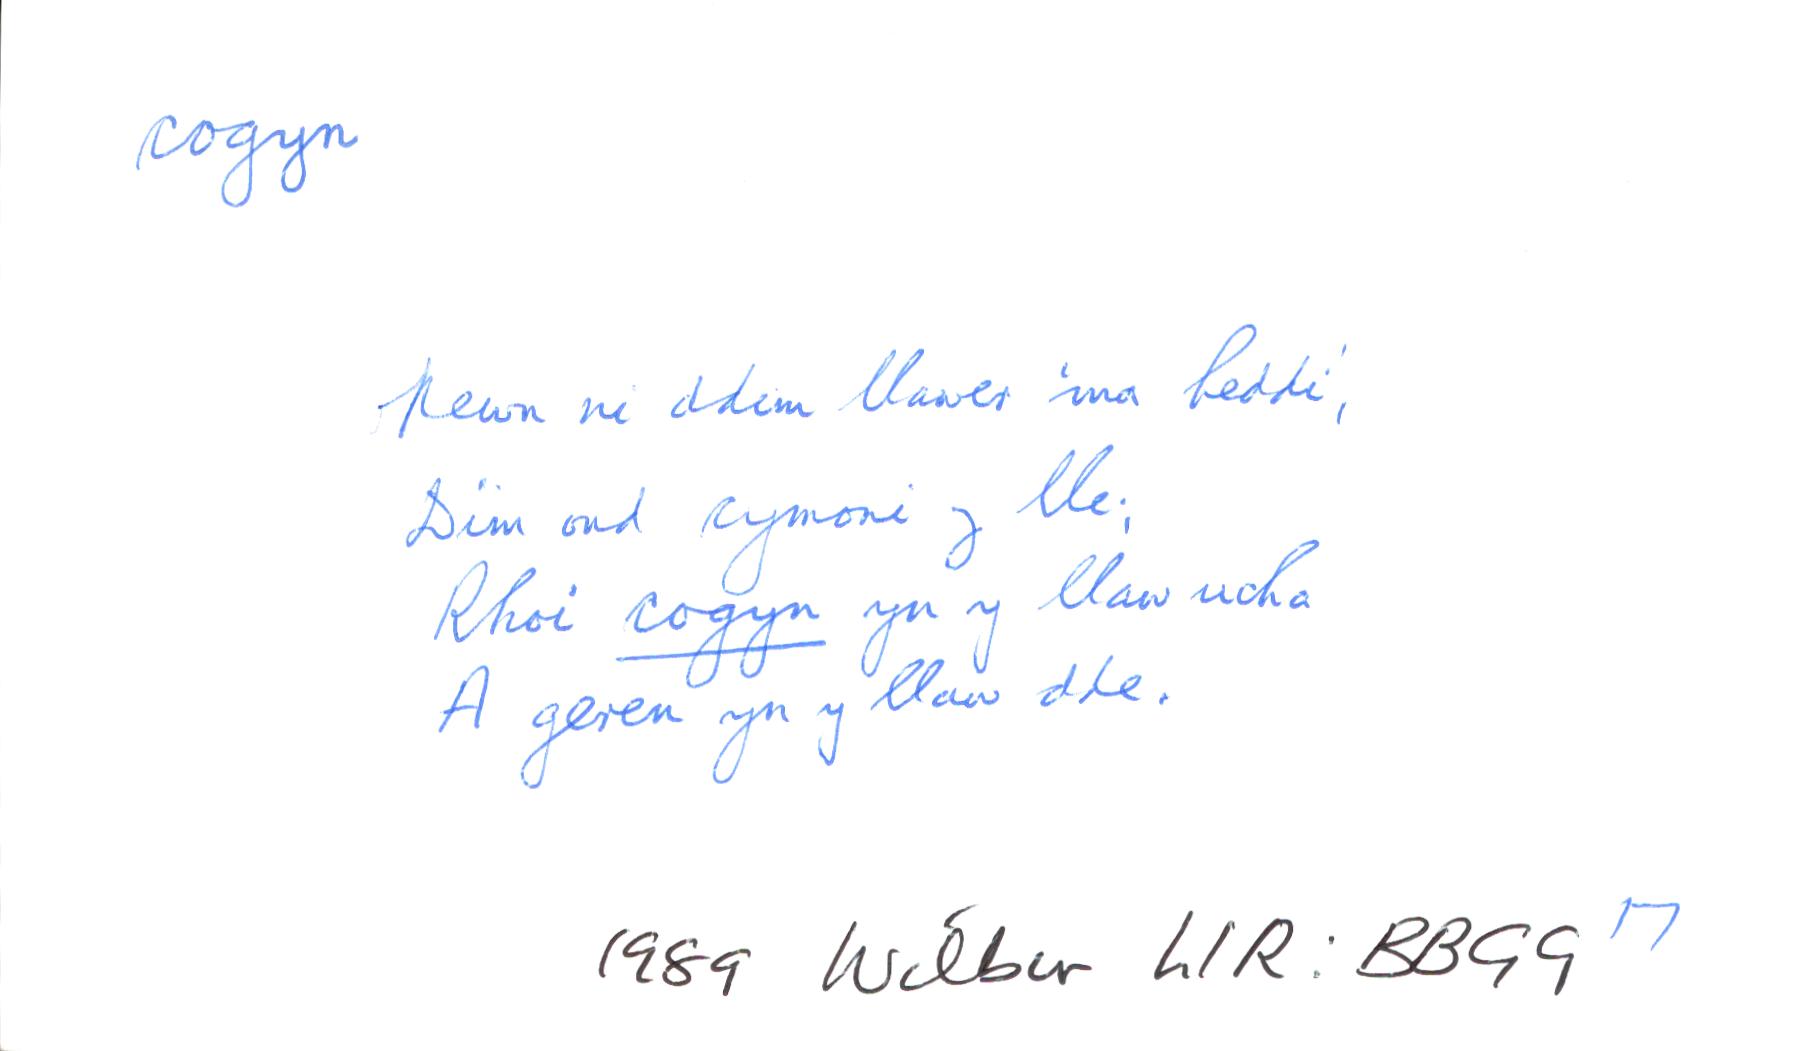 cogyn
Newn ni ddim llawer 'ma heddi',
Dim ond cymoni y lle;
Rhoi cogyn yn y llaw ucha
A geren yn y llaw dde.
1989 Wilbur LlR: BBGG 17